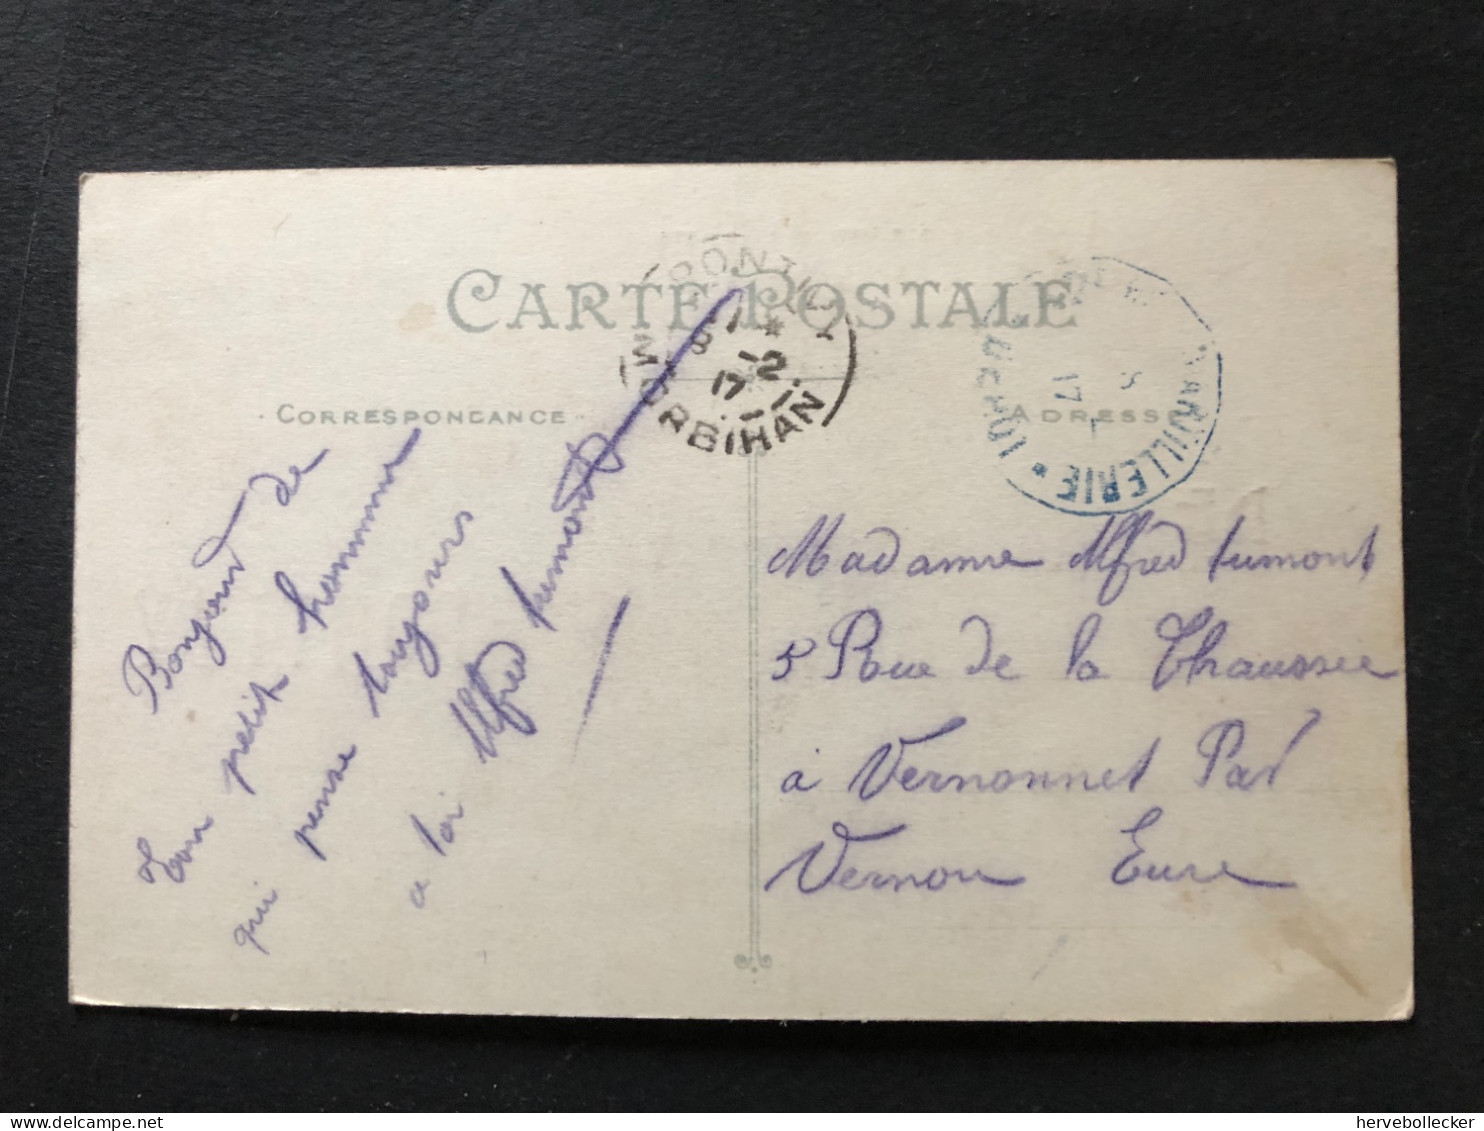 CARTE POSTALE
CORRESPONDANCE
ADRESSE
PONTIVY
8 *
12-2
17
MORBIHAN
17
ARTILLERIE *
Bonjour de
ton petit homme
qui pense toujours
a toi Alfred Fumont
Madame Alfred Fumont
5 Rue de la Chaussee
à Vernonnet Par
Vernon Eure
hervebollecker